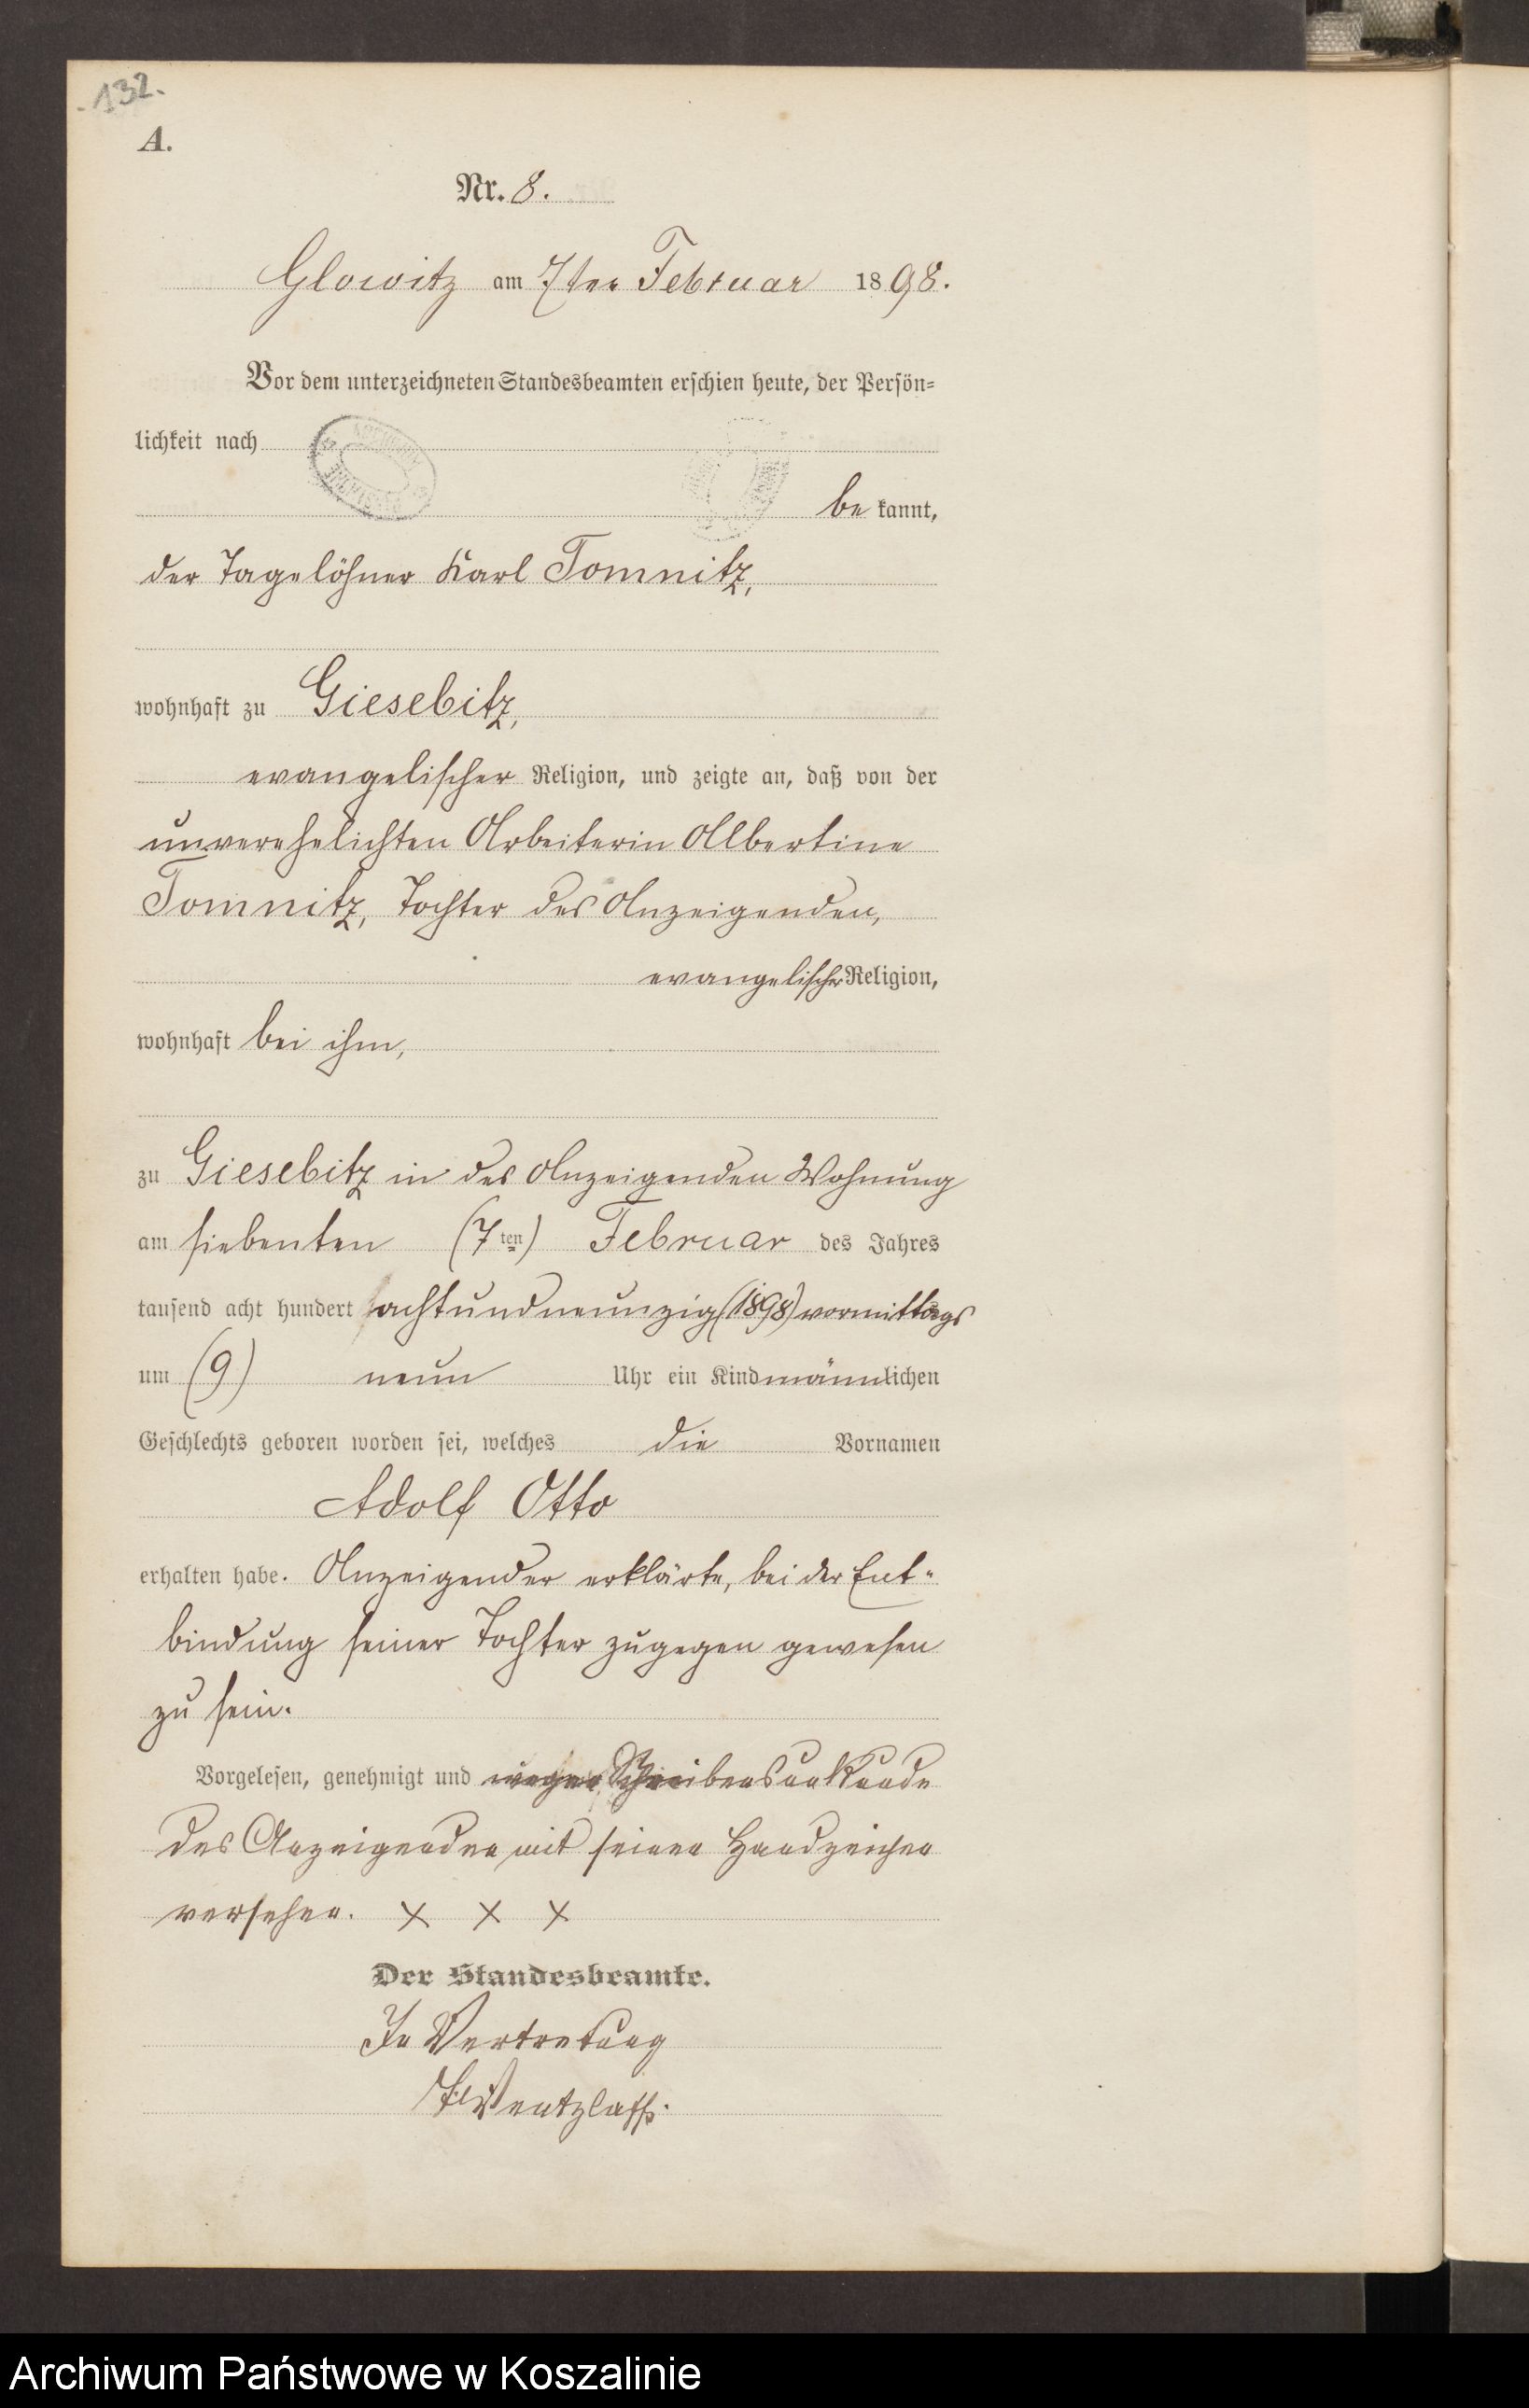 132.
A.
Nr. 8.
Glowitz am 7ten Februar 1898.
Vor dem unterzeichneten Standesbeamten erschien heute, der Persön=
lichkeit nach
be kannt,
der Tagelöhner Karl Tomnitz,
wohnhaft zu Giesebitz,
evangelischer Religion, und zeigte an, daß von der
unverehelichten Arbeiterin Albertine
Tomnitz, Tochter des Anzeigenden,
evangelischer Religion,
wohnhaft bei ihm,
zu Giesebitz in des Anzeigenden Wohnung
am siebenten (7ten) Februar des Jahres
tausend acht hundert achtundneunzig (1898) vormittags
um (9) neun Uhr ein Kind männlichen
Geschlechts geboren worden sei, welches die Vornamen
Adolf Otto
erhalten habe. Anzeigender erklärte, bei der Ent=
bindung seiner Tochter zugegen gewesen
zu sein.
Vorgelesen, genehmigt und wegen Schreibensunkunde
des Anzeigenden mit seinen Handzeichen
versehen. x x x
Der Standesbeamte.
In Vertretung
Wentzlaff.
Archiwum Państwowe w Koszalinie